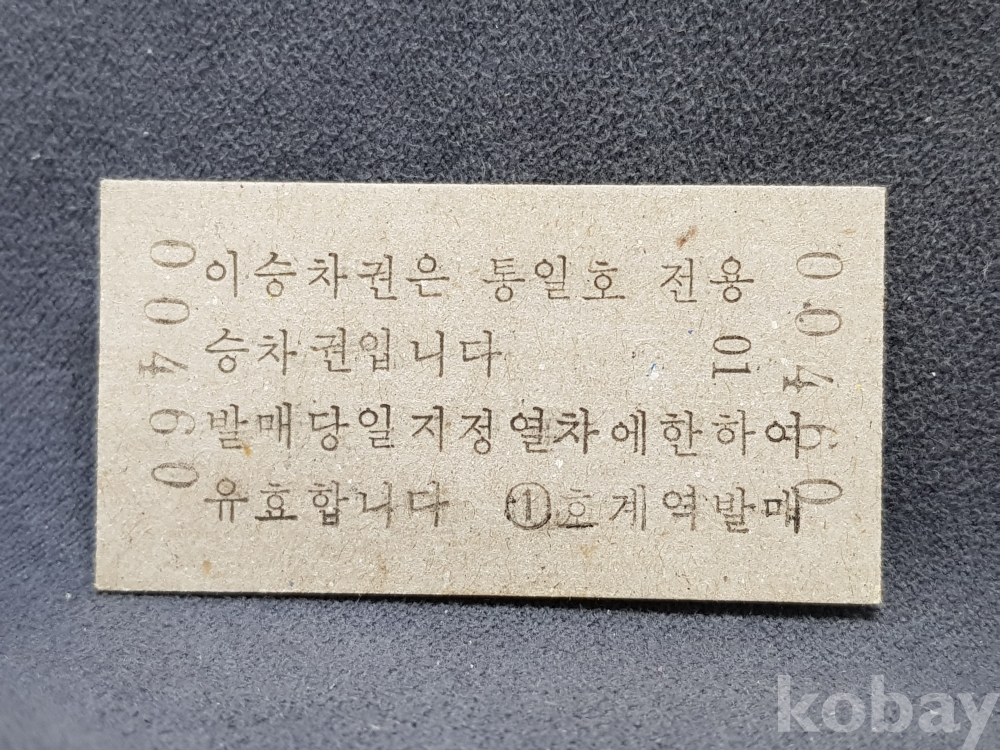 이승차권은 통일호 전용
승차권입니다 01
발매당일지정열차에한하여
유효합니다 ①호계역발매
00460
00460
kobay